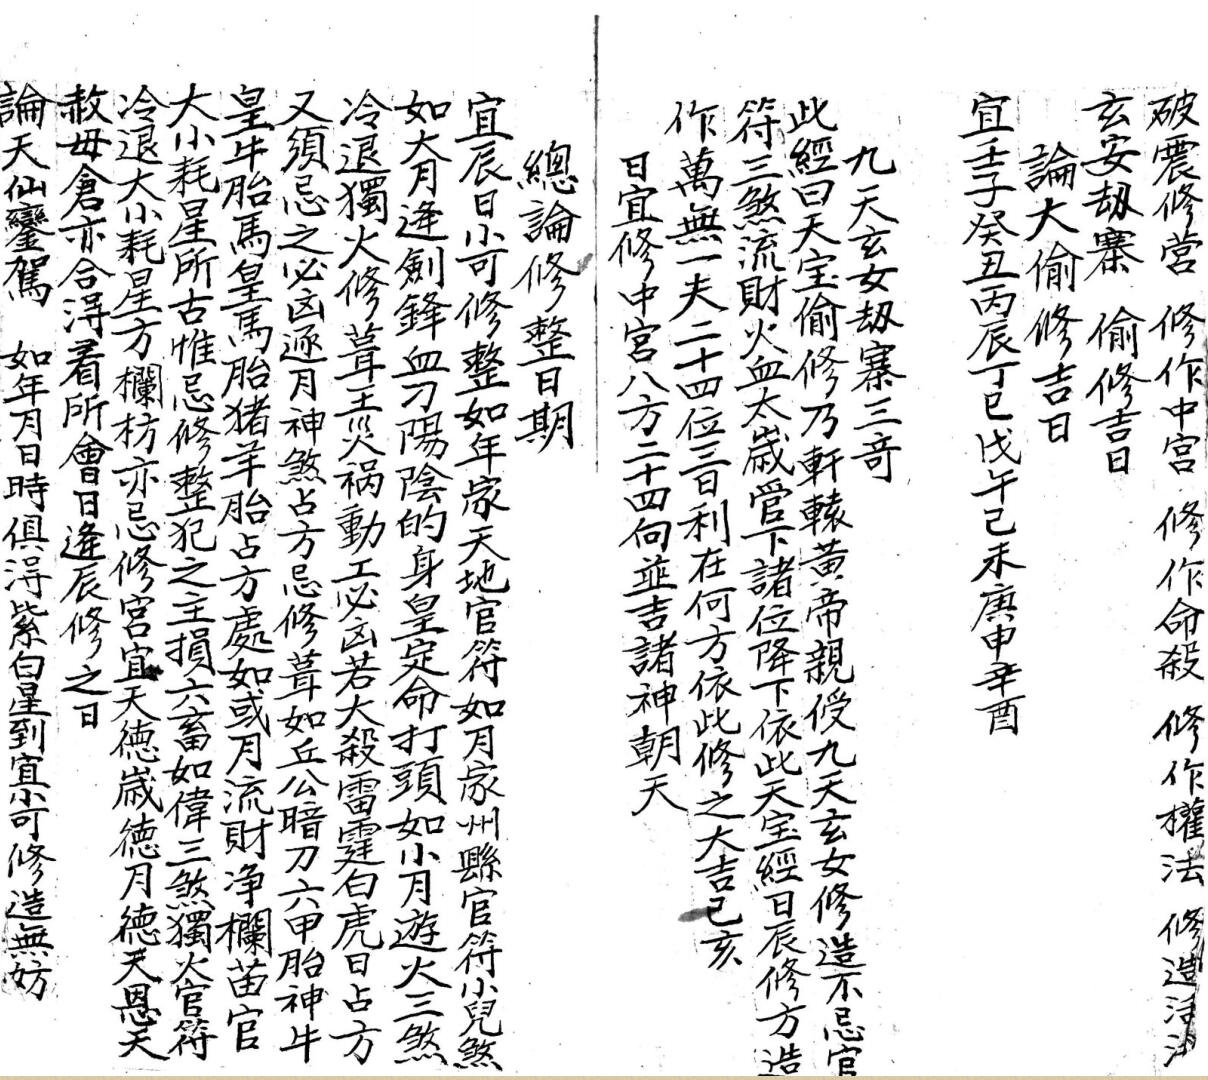 破震修营 修作中宮 修作命殺 修作權法 修造活法
玄安刼寨 偷修吉日
論大偷修吉日
宜壬子癸丑丙辰丁巳戊午己未庚申辛酉
九天玄女刼寨三奇
此經曰天宝偷修乃軒轅黃帝親俊九天玄女修造不忌官
符三煞流財火血太歲管下諸位降下依此天宝經日辰修方造
作萬無一夫二十四位三日利在何方依此修之大吉己亥
日宜修中宮八方二十四向並吉諸神朝天
總論修整日期
宜辰日小可修整如年家天地官符如月家州縣官符小兒煞
如大月逢劍鋒血刃陽陰的身皇定命打頭如小月遊火三煞
冷退獨火修葺主災祸動工必凶若大殺雷霆白虎日占方
又須忌之必凶逐月神煞占方忌修葺如丘公暗刀六甲胎神牛
皇牛胎馬皇馬胎猪羊胎占方處如或月流財净欄苗官
大小耗星所古惟忌修整犯之主損六畜如偉三煞獨火官符
冷退大小耗星方欄枋亦忌修宮宜天徳歲徳月徳天恩天
赦母倉亦合淂看所會日逄辰修之日
論天仙鑾駕 如年月日時俱淂紫白星到宜小可修造無妨